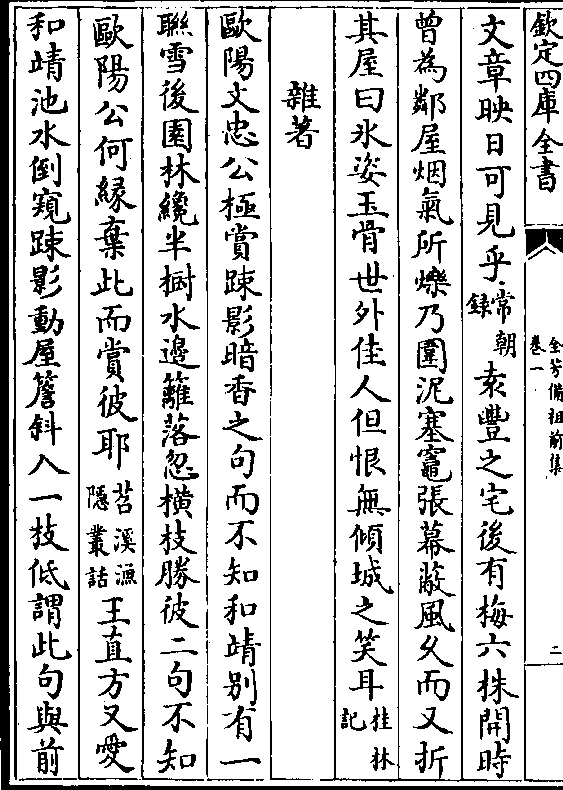 欽定四庫全書
全芳備祖前集
卷一
二
文章映日可見乎常朝録袁豐之宅後有梅六株開時
曾為鄰屋烟氣所爍乃圍泥塞竈張幕蔽風乆而又折
其屋曰氷姿玉骨世外佳人但恨無傾城之笑耳桂林記
雜著
歐陽文忠公極賞踈影暗香之句而不知和靖别有一
聯雪後園林纔半樹水邊籬落忽横枝勝彼二句不知
歐陽公何縁棄此而賞彼耶苕溪漁隱叢話王直方又愛
和靖池水倒窺踈影動屋簷斜入一枝低謂此句與前